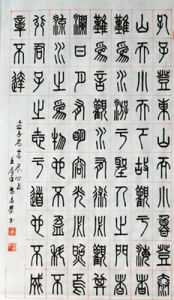 孔子登東山而小魯登泰
山而小天下故觀于海者
難為水游于聖人之門者
難為言觀水有術必觀其
瀾日月有明容光必照焉
流水之為物也不盈科不
行君子之志于道也不成
章不達
孟子名言盡心上